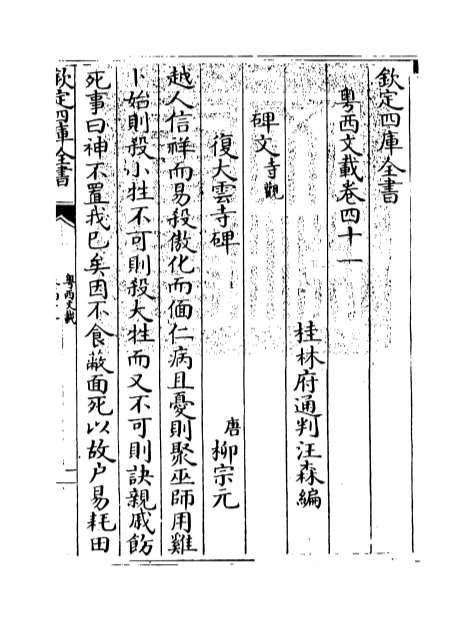 欽定四庫全書
粵西文載卷四十一
桂林府通判汪森編
碑文寺觀
復大雲寺碑
唐柳宗元
越人信祥而易殺傲化而偭仁病且憂則聚巫師用雞
卜始則殺小牲不可則殺大牲而又不可則訣親戚飭
死事曰神不置我已矣因不食蔽面死以故戶易耗田
欽定四庫全書
粵西文載
一